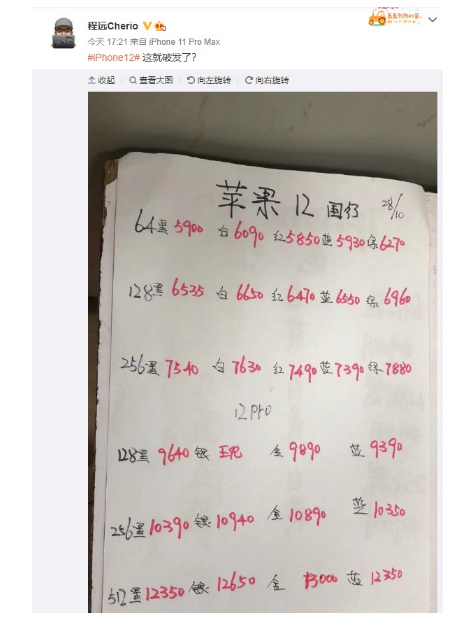 程远Cherio
今天 17:21 来自 iPhone 11 Pro Max
#iPhone12# 这就破发了？
收起 查看大图 向左旋转 向右旋转
苹果 12 国行 28/10
64黑5900 白6090 红5850 蓝5930 绿6270
128黑6535 白6650 红6470 蓝6550 绿6960
256黑7540 白7630 红7490 蓝7390 绿7880
12pro
128黑 9640 银 金 9890 蓝 9390
256黑10390 银10940 金10890 蓝10350
512黑12350 银12650 金 13000 蓝12350